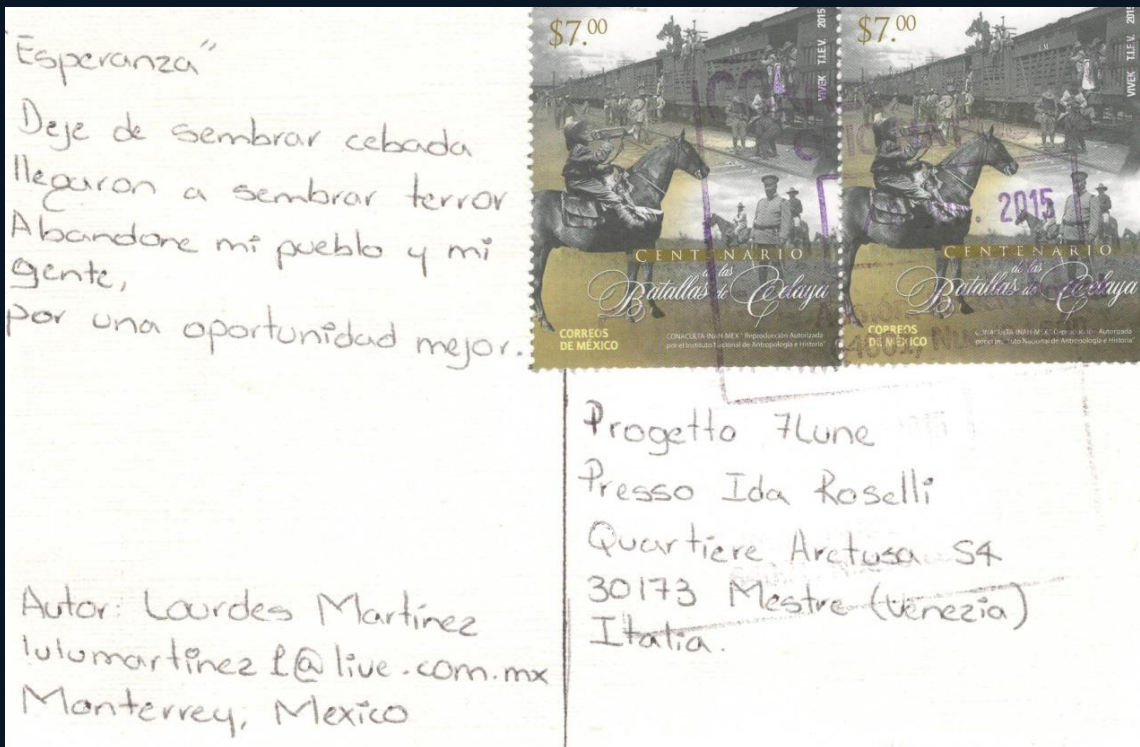 "Esperanza"
Deje de sembrar cebada
llegaron a sembrar terror
Abandone mi pueblo y mi
gente,
por una oportunidad mejor.
Autor: Lourdes Martínez
lulumartinez l@live.com.mx
Monterrey, Mexico
$7.00
VIVEK T.I.E.V. 2015
CENTENARIO
de las
Batallas de Celaya
CORREOS
DE MÉXICO
CONACULTA-INAH-MEX "Reproducción Autorizada
por el Instituto Nacional de Antropología e Historia"
$7.00
VIVEK T.I.E.V. 2015
2015
CENTENARIO
de las
Batallas de Celaya
CORREOS
DE MÉXICO
CONACULTA-INAH-MEX "Reproducción Autorizada
por el Instituto Nacional de Antropología e Historia"
Progetto 7Lune
Presso Ida Roselli
Quartiere Aretusa S4
30173 Mestre (Venezia)
Italia.